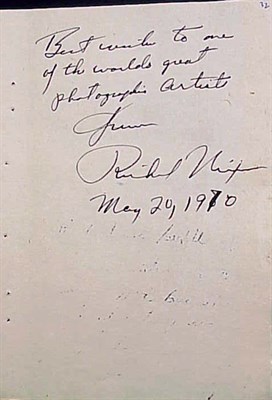 32
Best wishes to one
of the worlds great
photographic artists
from
Richard Nixon
May 20, 1970